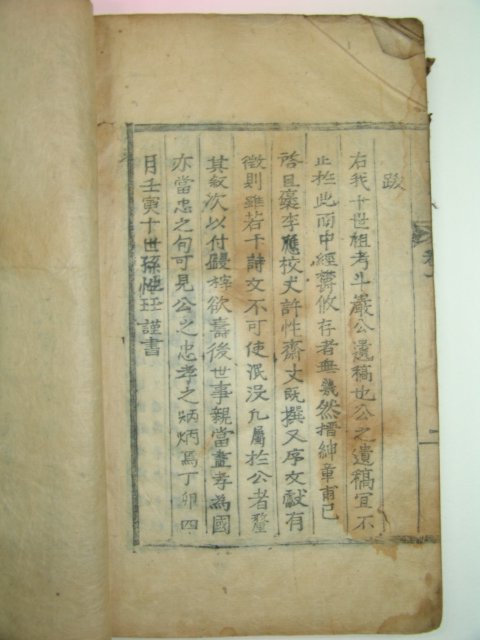 跋
右我十世祖考斗巖公遺稿也公之遺稿宜不
止於此而中經欝攸存者無幾然搢紳章甫已
啓且褒李應校丈許性齋丈旣撰又序文獻有
徵則雖若干詩文不可使泯沒凡屬於公者釐
其敍次以付鋟梓欲壽後世事親當盡孝為國
亦當忠之句可見公之忠孝之炳炳焉丁卯四
月壬寅十世孫 謹書